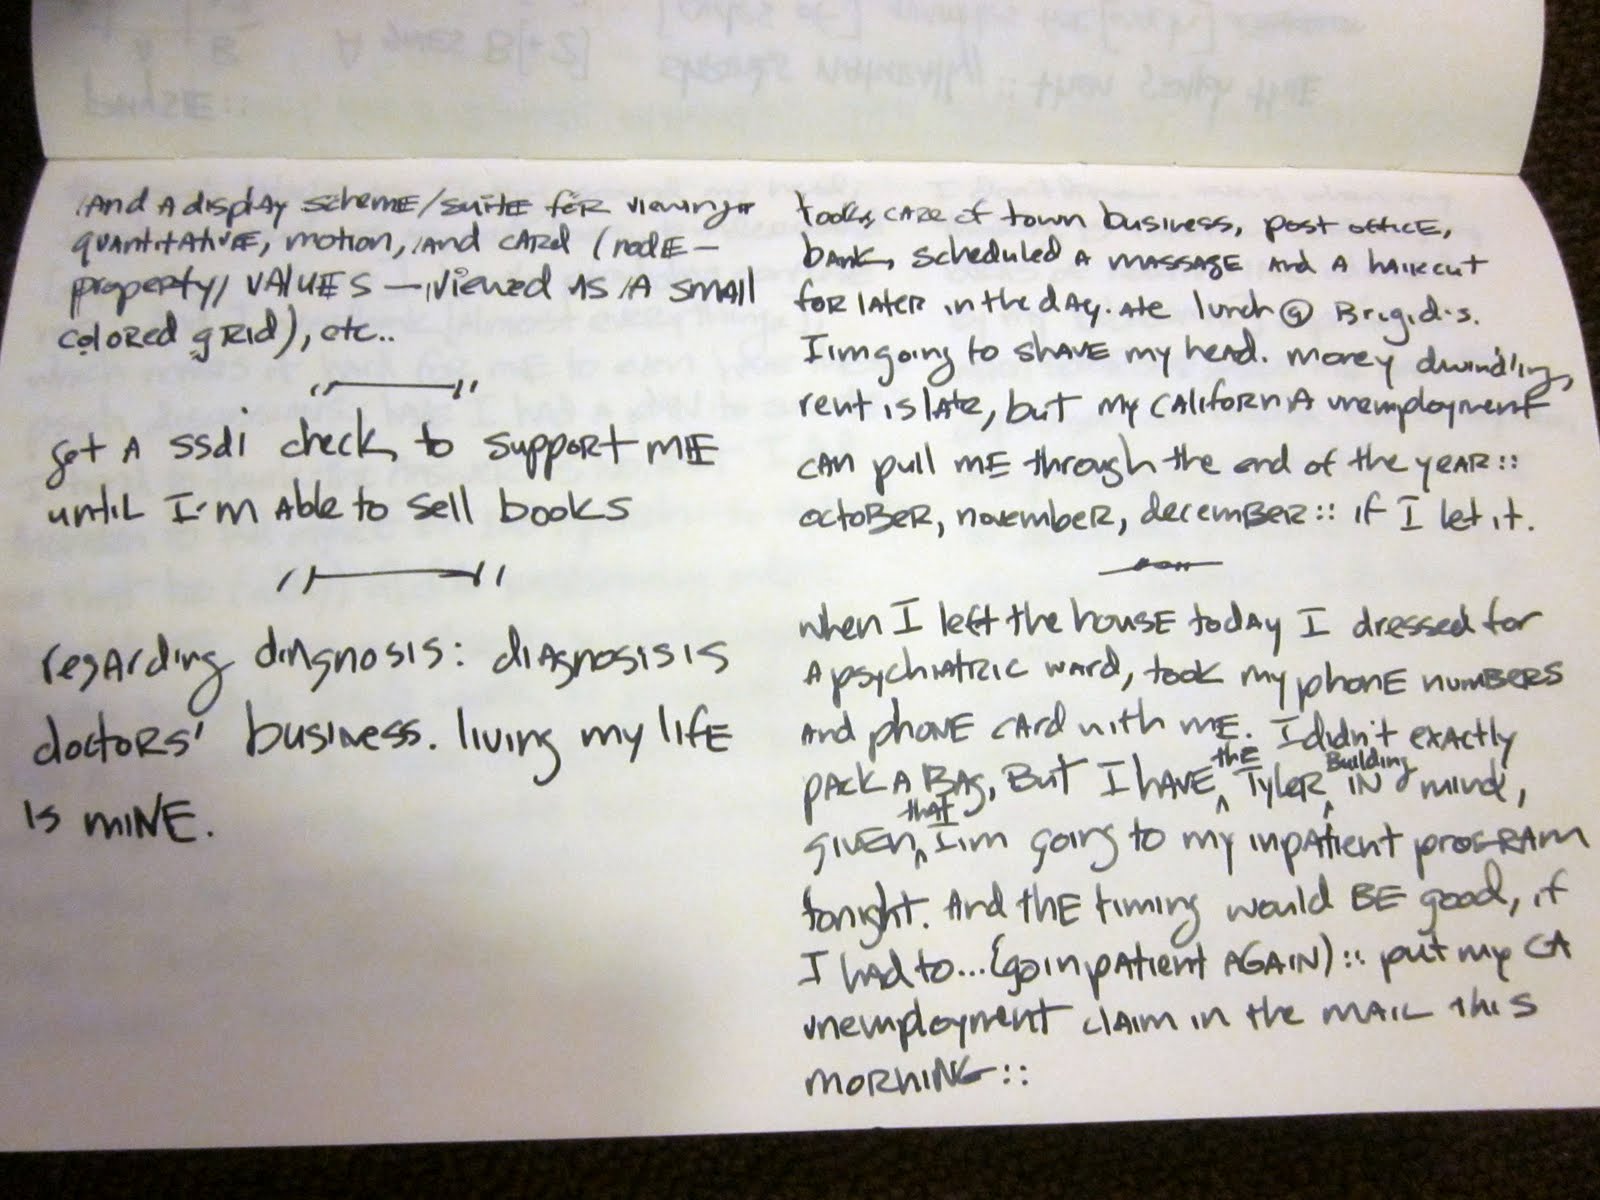 And A display scheme/suite for viewing
quantitative, motion, and card (node-
property/ VALUES — viewed as a small
colored grid), etc..
get A ssdi check to support ME
until I'm Able to sell books
regarding diagnosis: diagnosis is
doctors' business. living my life
is MINE.
took care of town business, post office,
bank, scheduled a massage and a haircut
for later in the day. ate lunch @ Brigid's.
I'm going to shave my head. money dwindling,
rent is late, but my California unemployment
can pull me through the end of the year::
october, november, december:: if I let it.
when I left the house today I dressed for
a psychiatric ward, took my phone numbers
and phone card with me. I didn't exactly
pack a bag, But I have the Tyler Building in mind,
given that I'm going to my inpatient program
tonight. And the timing would be good, if
I had to... (go inpatient AGAIN):: put my CA
unemployment claim in the mail this
morning::